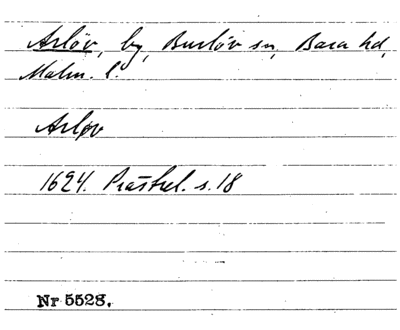 Arlöv, by, Burlöv sn, Bara hd,
Malm. l.
Arløv
1624. Prästrel. s. 18
Nr 5528.